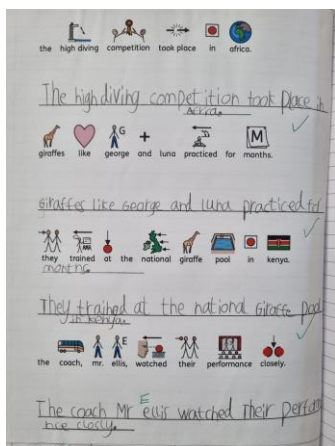 the high diving competition took place in africa.
The high diving competition took place in
Africa.
G
M
giraffes like george and luna practiced for months.
giraffes like George and luna practiced for
they trained at the national giraffe pool in kenya.
months.
They trained at the national Giraffe pool
in kenya.
E
the coach, mr. ellis, watched their performance closely.
The coach Mr ellis watched Their perform
E
nce closly.